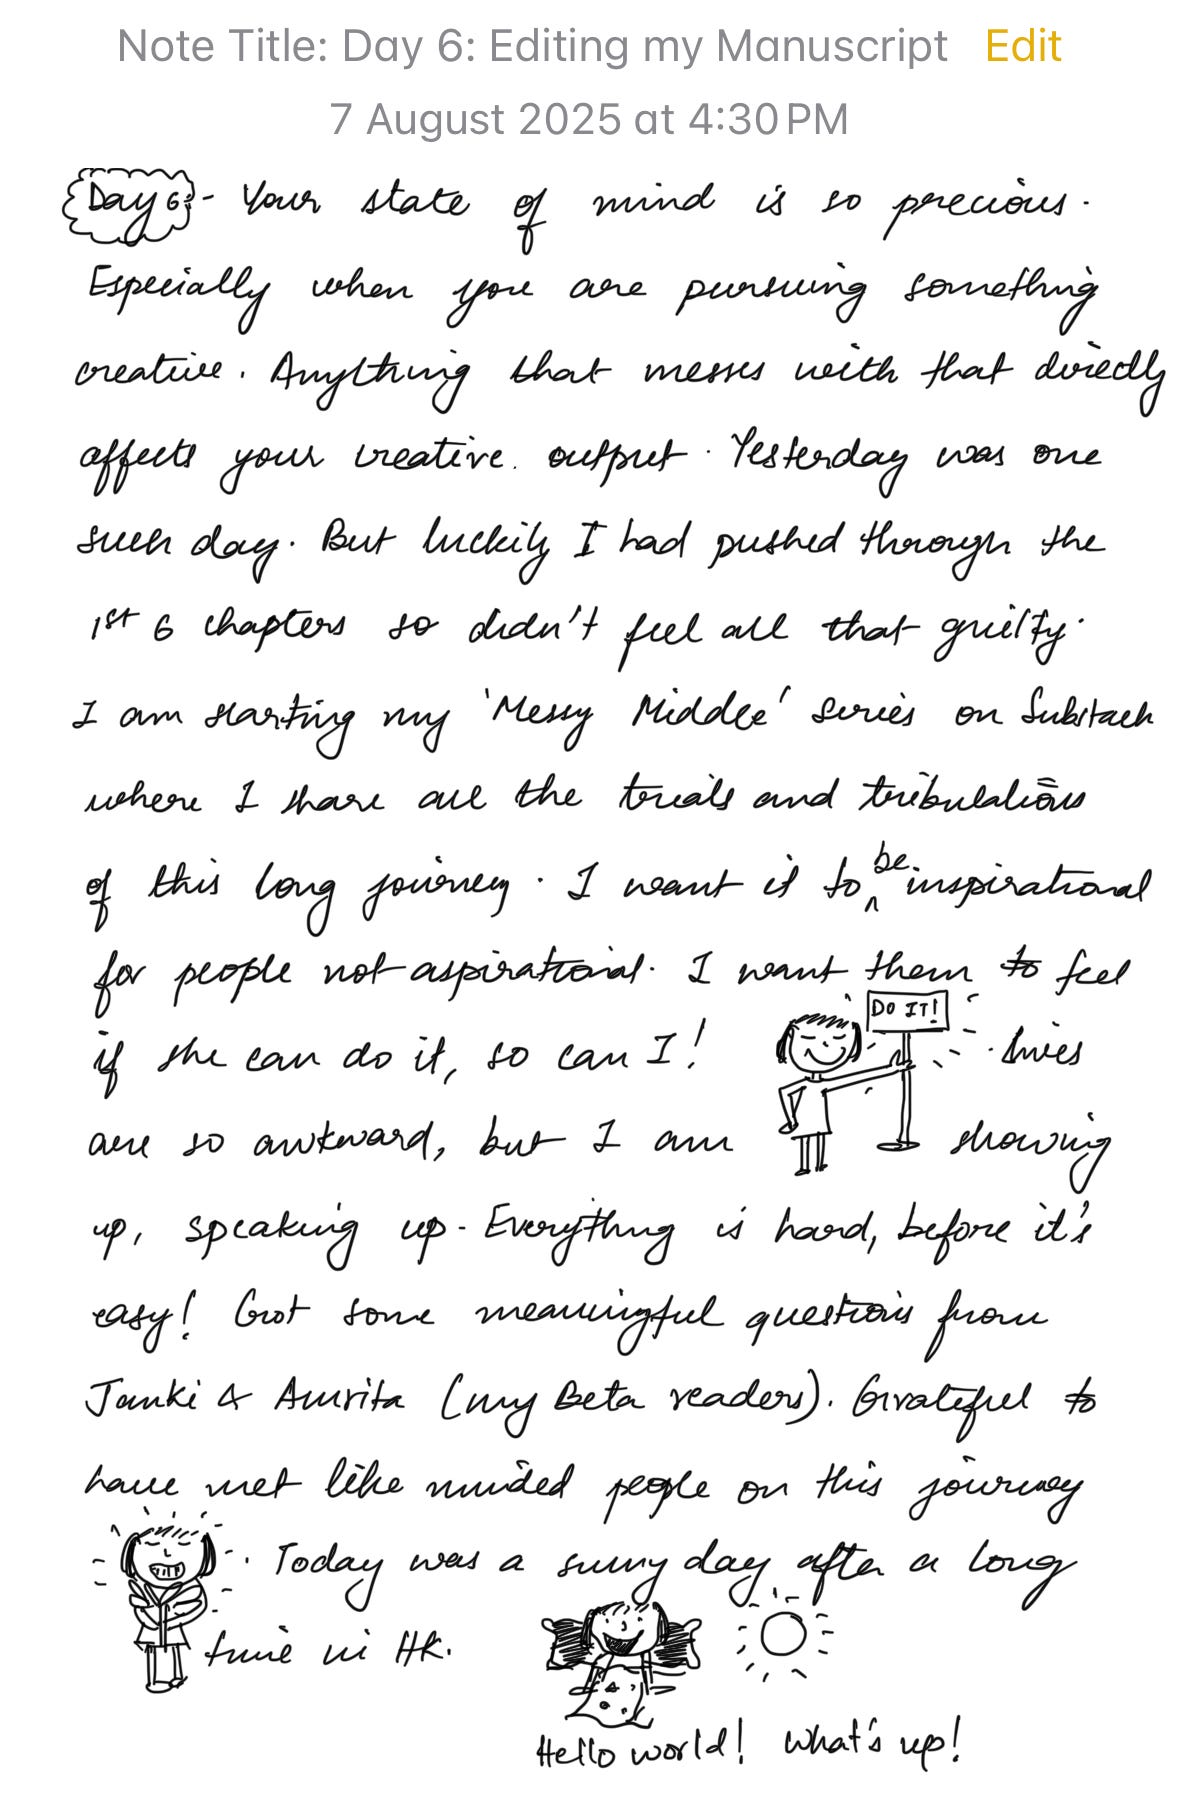 Note Title: Day 6: Editing my Manuscript Edit
7 August 2025 at 4:30 PM
Day 6:- Your state of mind is so precious.
Especially when you are pursuing something
creative. Anything that messes with that directly
affects your creative output. Yesterday was one
such day. But luckily I had pushed through the
1st 6 chapters so didn't feel all that guilty.
I am starting my 'Messy Middle' series on Substack
where I share all the trials and tribulations
of this long journey. I want it to be inspirational
for people not aspirational. I want them to feel
if she can do it, so can I!
DO IT!
. lives
are so awkward, but I am showing
up, speaking up. Everything is hard, before it's
easy! Got some meaningful questions from
Janki & Amrita (my Beta readers). Grateful to
have met like minded people on this journey
. Today was a sunny day after a long
time in HK.
Hello world! What's up!